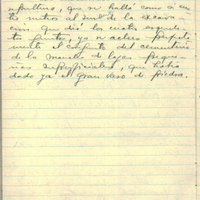 sepultura, que se halló como a cua
tro metros al sud de la excava
ción que dió los cuatro esquele
tos juntos, ya se aclara perfecta
mente el conjunto del cementerio
de la mancha de lajas peque
ñas superficiales, que había
dado ya el gran vaso de piedra.